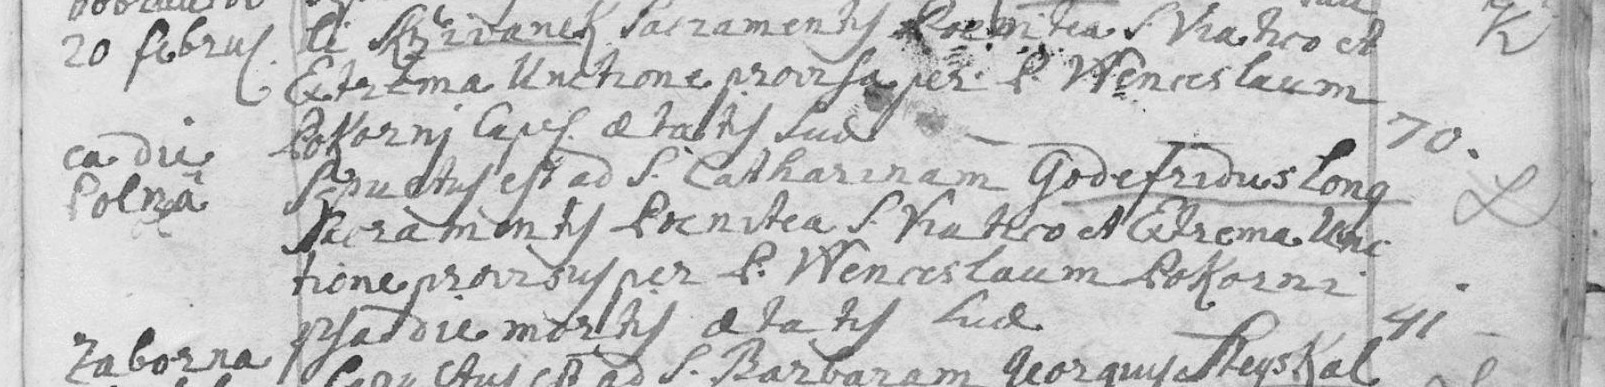 20 februs. li Skrzivanek Sacramentis Poenitea S. Viatico et K
Extrema Unctione provisa per P. Wenceslaum
Pokornj Capel. ætatis suæ 70.
ea die
Polnã Sepultus est ad S. Catharinam Godefridus Long L
Sacramentis Poenitea S. Viatico et Extrema Unc
tione provisus per P. Wenceslaum Pokorni
ipsa die mortis ætatis suæ 41
Zaborna Sepultus est ad S. Barbaram Georgius Heyskal